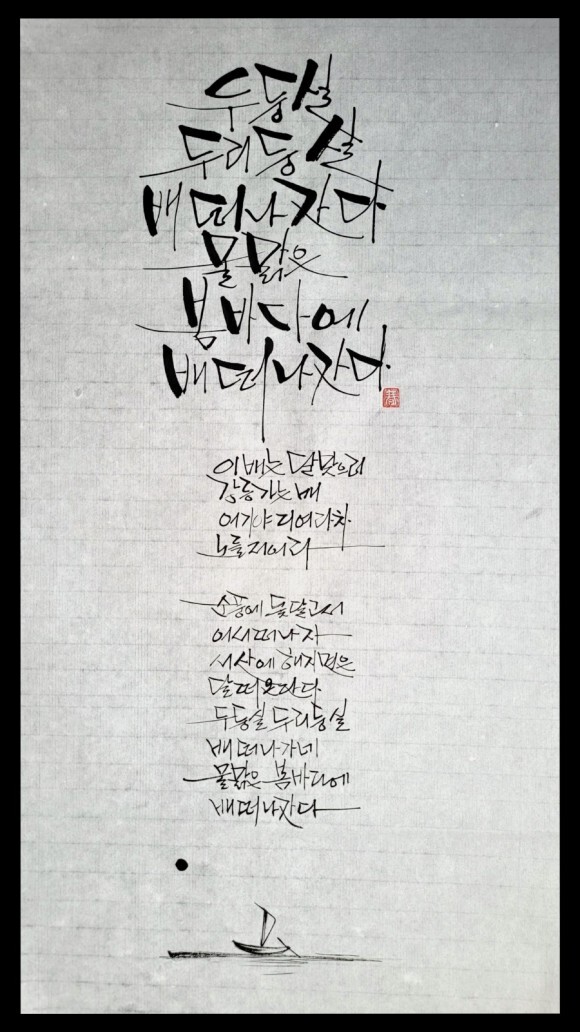 두둥실
두리둥실
배 떠나간다
물 맑은
봄바다에
배 떠나간다
이 배는 달 맞으러
강릉 가는 배
어기야 디여라차
노를 저어라
순풍에 돛 달고서
어서 떠나자
서산에 해 지면은
달 떠온단다
두둥실 두리둥실
배 떠나가네
물 맑은 봄바다에
배 떠나간다